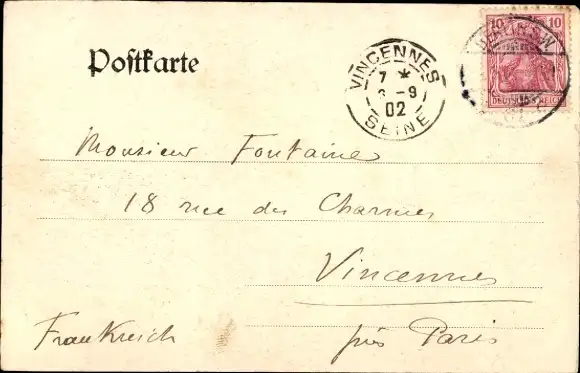 Postkarte
VINCENNES
7 *
9
02
SEINE
10 10
BERLIN S.W.
DEUTSCHES REICH
Monsieur Fontaine
18 rue des Charmes
Vincennes
près Paris
Frankreich